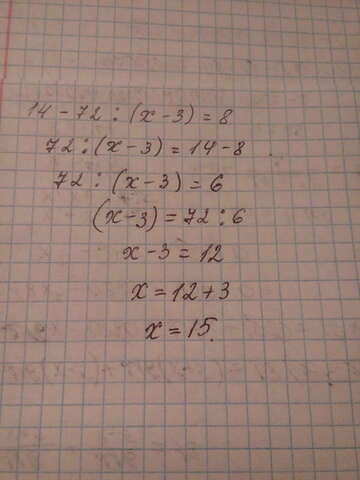 14 - 72 : (x - 3) = 8
72 : (x - 3) = 14 - 8
72 : (x - 3) = 6
(x - 3) = 72 : 6
x - 3 = 12
x = 12 + 3
x = 15.